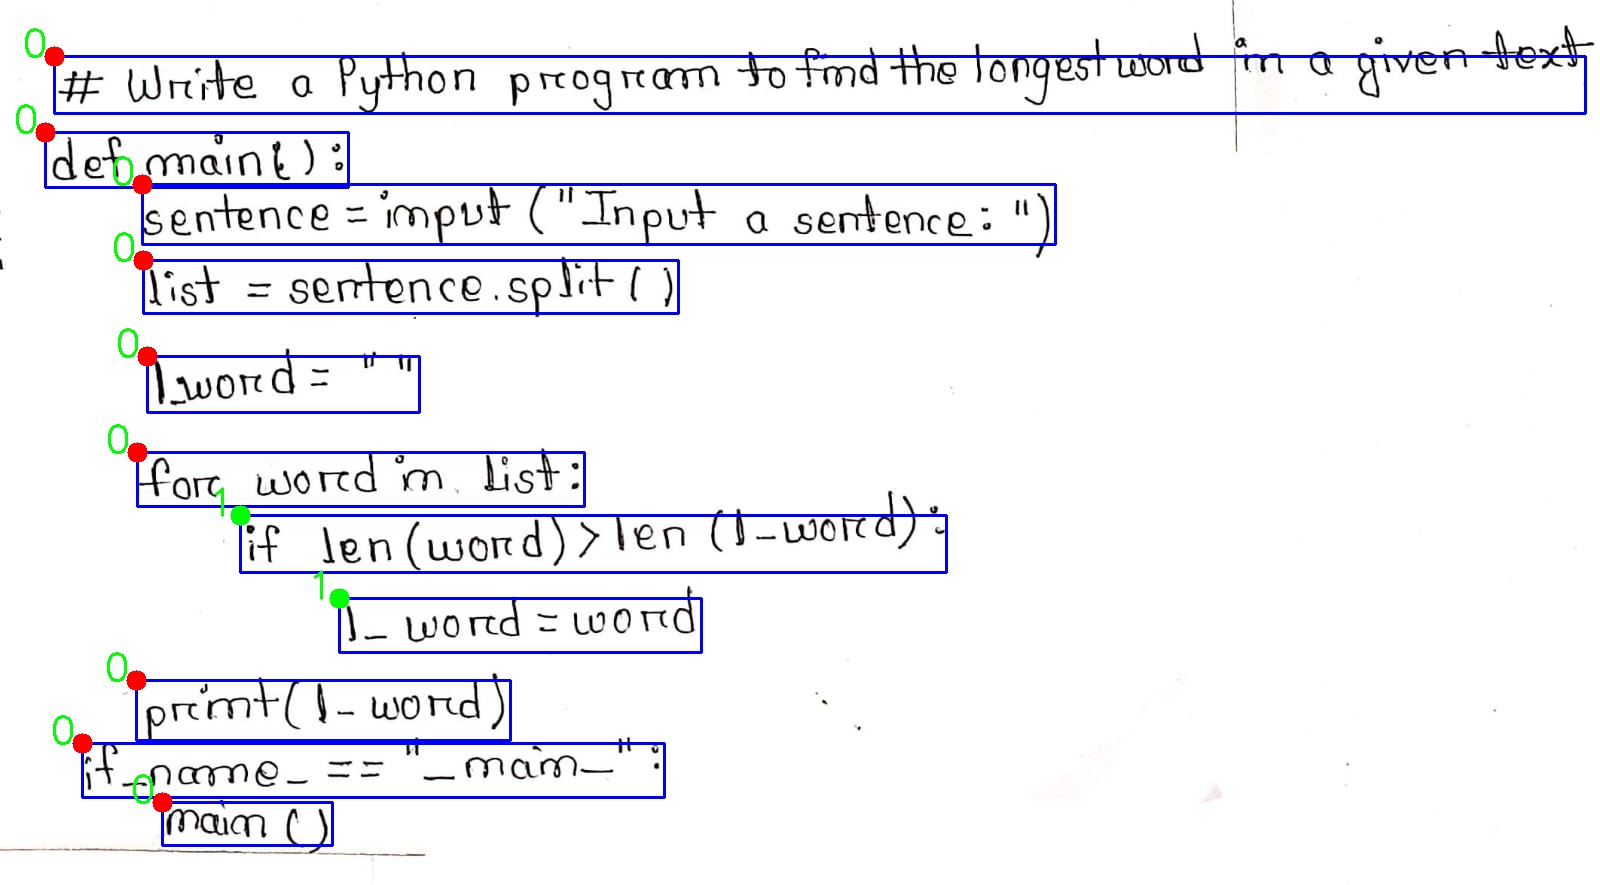 # Write a Python program to find the longest word in a given text
def main():
    sentence = input ("Input a sentence: ")
    list = sentence.split()
    l_word = " "
    for word in list:
        if len(word) > len (l_word):
            l_word = word
    print(l_word)
if _name_ == "_main_":
    main()